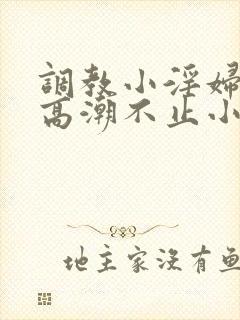 調教小淫婦
高潮不止小
地主家沒有鱼